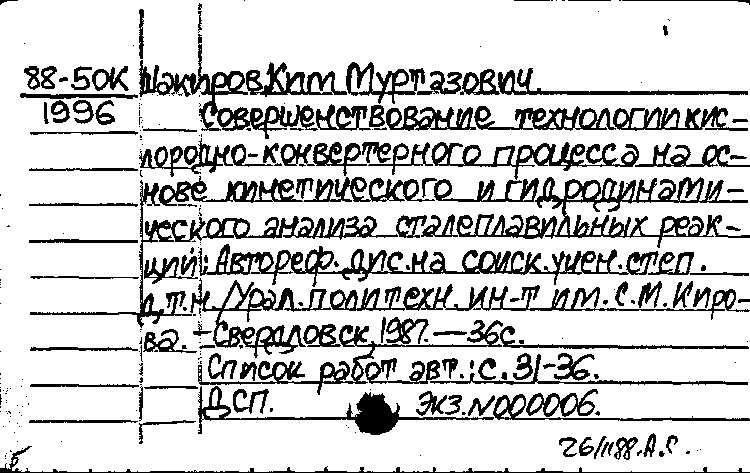 88-50К Шакиров, Ким Муртазович.
1996 Совершенствование технологии кис-
лородно-конвертерного процесса на ос-
нове кинетического и гидродинами-
ческого анализа сталеплавильных реак-
ций: Автореф. дис. на соиск. учен. степ.
д.т.н. /Урал. политехн. ин-т им. С.М. Киро-
ва. - Свердловск, 1987. — 36с.
Список работ авт.: с. 31-36.
ДСП. Экз. N000006.
26/II88. А.С.
Б